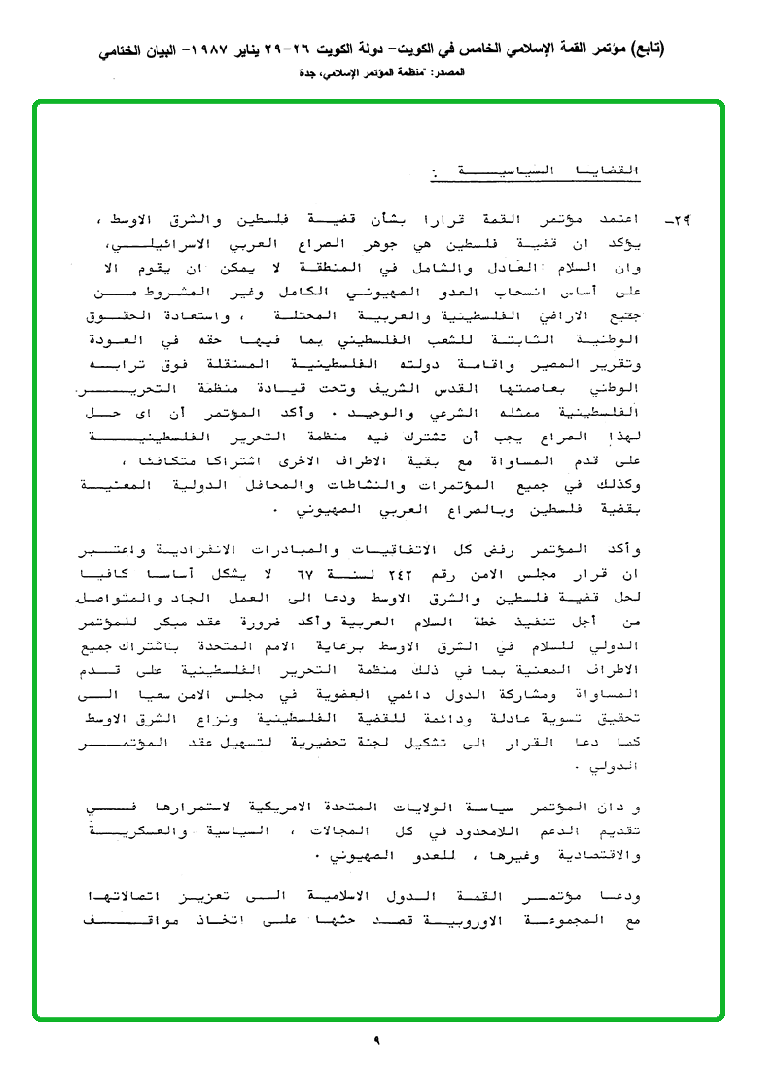 (تابع) مؤتمر القمة الإسلامي الخامس في الكويت- دولة الكويت ٢٦-٢٩ يناير ١٩٨٧- البيان الختامي
المصدر: "منظمة المؤتمر الإسلامي، جدة
القضايا السياسية :
٢٩- اعتمد مؤتمر القمة قرارا بشأن قضية فلسطين والشرق الاوسط ،
يؤكد ان قضية فلسطين هي جوهر الصراع العربي الاسرائيلي،
وان السلام العادل والشامل في المنطقة لا يمكن ان يقوم الا
على أساس انسحاب العدو الصهيوني الكامل وغير المشروط من
جميع الاراضي الفلسطينية والعربية المحتلة ، واستعادة الحقوق
الوطنية الثابتة للشعب الفلسطيني بما فيها حقه في العودة
وتقرير المصير واقامة دولته الفلسطينية المستقلة فوق ترابه
الوطني بعاصمتها القدس الشريف وتحت قيادة منظمة التحرير
الفلسطينية ممثله الشرعي والوحيد . وأكد المؤتمر أن اى حل
لهذا الصراع يجب أن تشترك فيه منظمة التحرير الفلسطينية
على قدم المساواة مع بقية الاطراف الاخرى اشتراكا متكافئا ،
وكذلك في جميع المؤتمرات والنشاطات والمحافل الدولية المعنية
بقضية فلسطين وبالصراع العربي الصهيوني .
وأكد المؤتمر رفض كل الاتفاقيات والمبادرات الانفرادية واعتبر
ان قرار مجلس الامن رقم ٢٤٢ لسنة ٦٧ لا يشكل أساسا كافيا
لحل قضية فلسطين والشرق الاوسط ودعا الى العمل الجاد والمتواصل
من أجل تنفيذ خطة السلام العربية وأكد ضرورة عقد مبكر للمؤتمر
الدولي للسلام في الشرق الاوسط برعاية الامم المتحدة باشتراك جميع
الاطراف المعنية بما في ذلك منظمة التحرير الفلسطينية على قدم
المساواة ومشاركة الدول دائمي العضوية في مجلس الامن سعيا الى
تحقيق تسوية عادلة ودائمة للقضية الفلسطينية ونزاع الشرق الاوسط
كما دعا القرار الى تشكيل لجنة تحضيرية لتسهيل عقد المؤتمر
الدولي .
و دان المؤتمر سياسة الولايات المتحدة الامريكية لاستمرارها في
تقديم الدعم اللامحدود في كل المجالات ، السياسية والعسكرية
والاقتصادية وغيرها ، للعدو الصهيوني .
ودعا مؤتمر القمة الدول الاسلامية الى تعزيز اتصالاتها
مع المجموعة الاوروبية قصد حثها على اتخاذ مواقف
٩